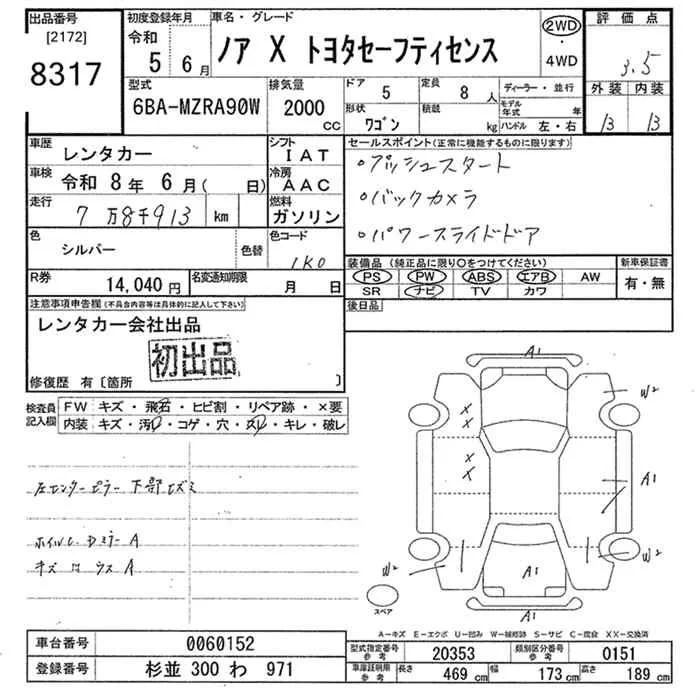 出品番号
[2172]
8317
初度登録年月
令和
5 6 月
車名・グレード
ノア X トヨタセーフティセンス
2WD
・
4WD
評価点
3.5
外装 内装
B B
型式
6BA-MZRA90W
排気量
2000
CC
ドア
5
定員
8 人
形状
ワゴン
積載
kg
ディーラー・並行
モデル年式 年
ハンドル 左・右
車歴 レンタカー
車検 令和 8 年 6 月( 日)
走行 7 万8千913 km
シフト
IAT
冷房
AAC
燃料
ガソリン
色 シルバー
色替
色コード
1K0
R券 14,040 円
名変通知期限
月 日
セールスポイント(正常に機能するものに限ります)
◦プッシュスタート
◦バックカメラ
◦パワースライドドア
装備品(純正品に限り○をつけてください)
新車保証書
PS PW ABS エアB AW
SR ナビ TV カワ
有・無
後日品
注意事項申告欄(不具合内容等は具体的に記入して下さい)
レンタカー会社出品
初出品
修復歴 有〔箇所 〕
検査員記入欄
FW キズ・飛石・ヒビ割・リペア跡・×要
内装 キズ・汚レ・コゲ・穴・スレ・キレ・破レ
左センターピラー下部
A
A
A1
W2
A1
W2
W2
A1
A1
X
X
X
X
スペア
A-キズ E-エクボ U-凹み W-補修跡 S-サビ C-腐食 XX-交換済
車台番号 0060152
登録番号 杉並 300 わ 971
型式指定番号
参考
20353
類別区分番号
参考
0151
車庫証明用
参考
長さ 469 cm
幅 173 cm
高さ 189 cm